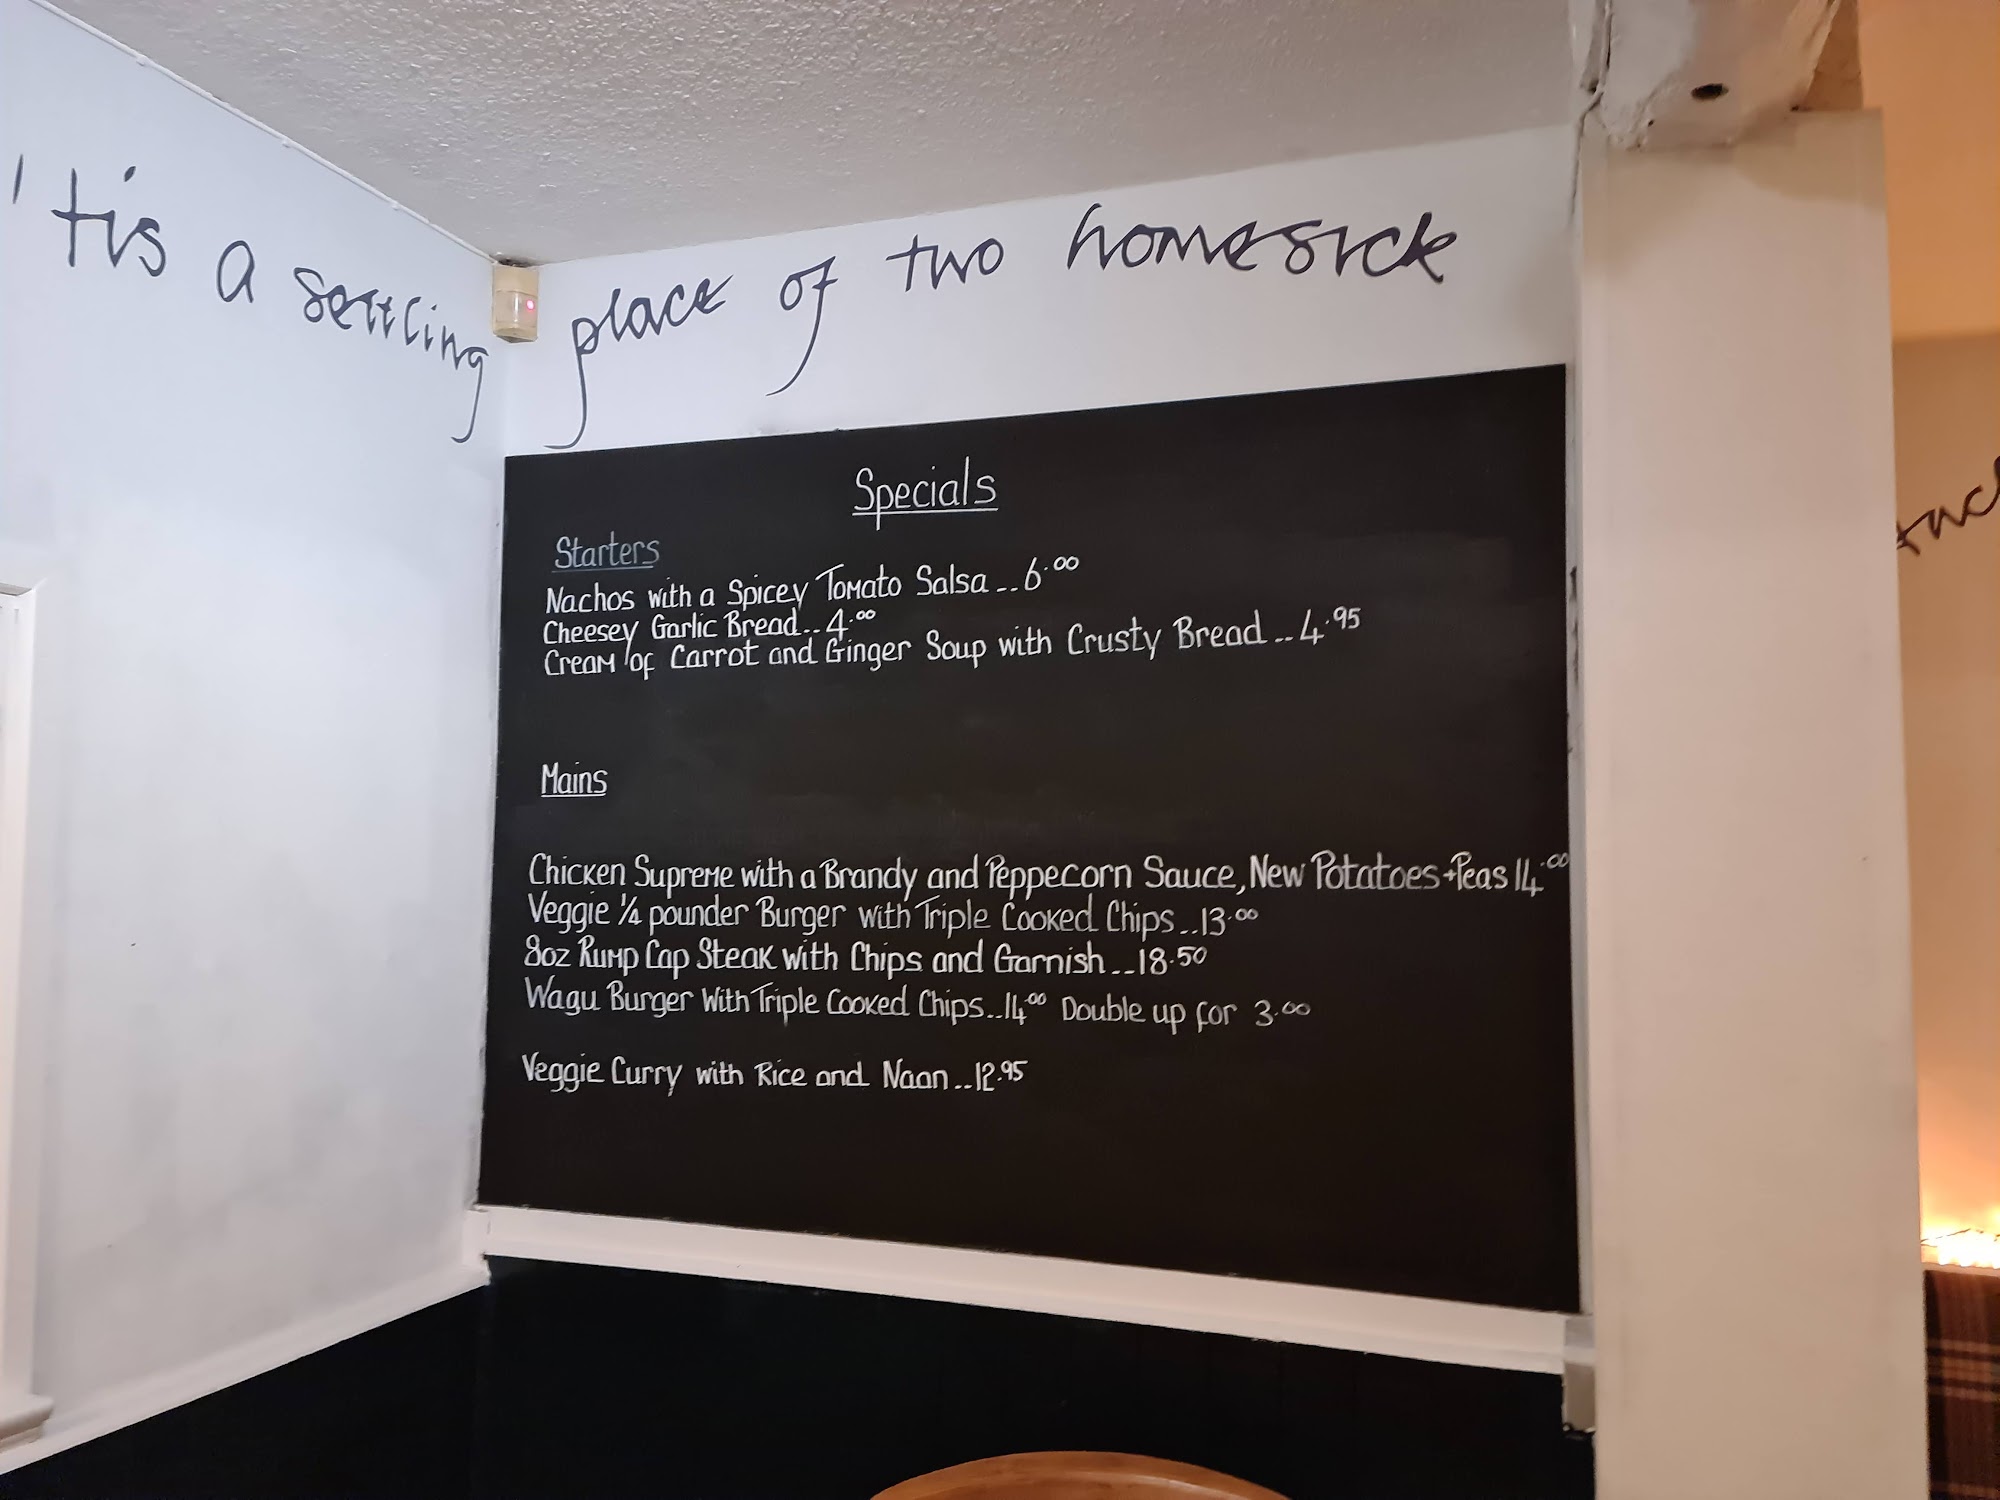 'tis a settling place of two homesick
Specials
Starters
Nachos with a Spicey Tomato Salsa...6.00
Cheesey Garlic Bread...4.00
Cream of Carrot and Ginger Soup with Crusty Bread...4.95
Mains
Chicken Supreme with a Brandy and Peppecorn Sauce, New Potatoes + Peas 14.00
Veggie 1/4 pounder Burger with Triple Cooked Chips...13.00
8oz Rump Cap Steak with Chips and Garnish...18.50
Wagu Burger With Triple Cooked Chips...14.00 Double up for 3.00
Veggie Curry with Rice and Naan...12.95